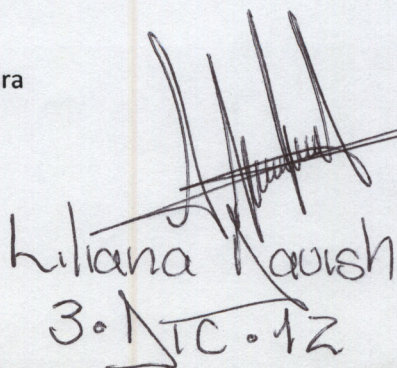 ra
Liliana Kavish
3.DIC.12